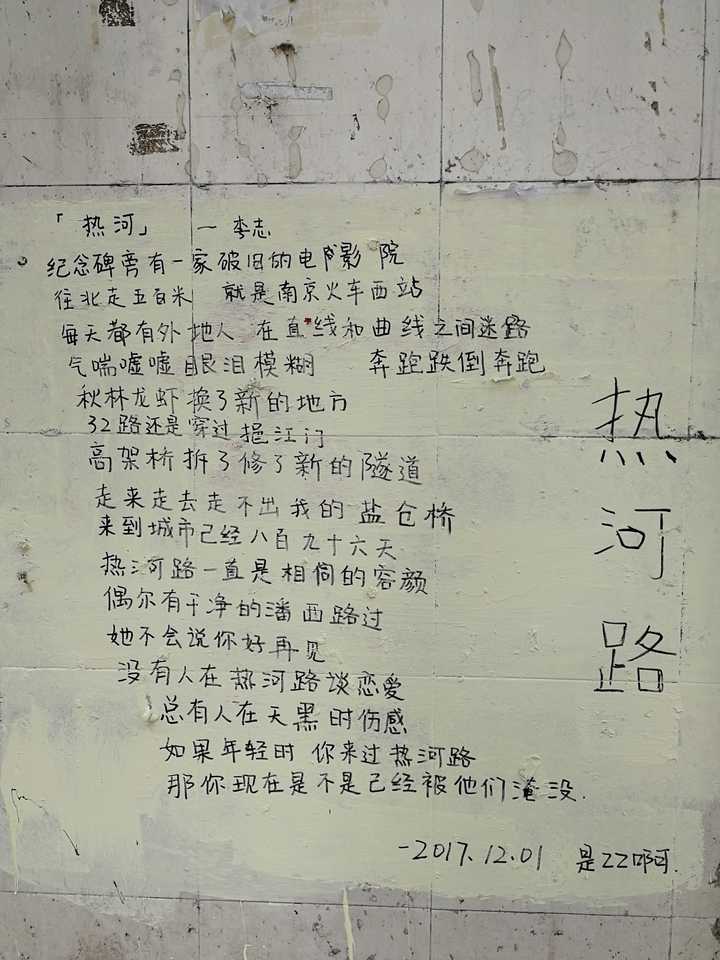 「热河」 — 李志
纪念碑旁有一家破旧的电影影院
往北走五百米 就是南京火车西站
每天都有外地人 在直线和曲线之间迷路
气喘嘘嘘眼泪模糊 奔跑跌倒奔跑
秋林龙虾换了新的地方
32路还是穿过挹江门
高架桥拆了修了新的隧道
走来走去走不出我的盐仓桥
来到城市已经八百九十六天
热河路一直是相同的容颜
偶尔有干净的潘西路过
她不会说你好再见
没有人在热河路谈恋爱
总有人在天黑时伤感
如果年轻时你来过热河路
那你现在是不是已经被他们淹没.
-2017.12.01 是ZZ啊.
热河路